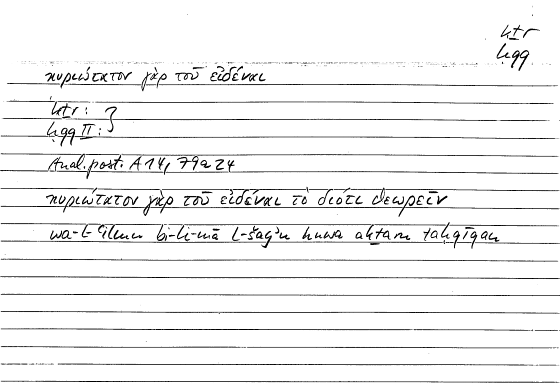 kṯr
ḥqq
κυριώτατον γὰρ τοῦ εἰδέναι
kṯr :
ḥqq II :
Anal. post. A 14, 79a24
κυριώτατον γὰρ τοῦ εἰδέναι τὸ διότι θεωρεῖν
wa-l-ʿilmu bi-li-mā l-šayʾu huwa akṯaru taḥqīqan